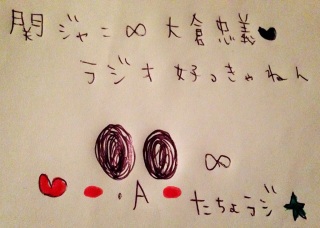 関ジャニ∞大倉忠義♥
ラジオ好っきゃねん
∞
.A たちょラジ★